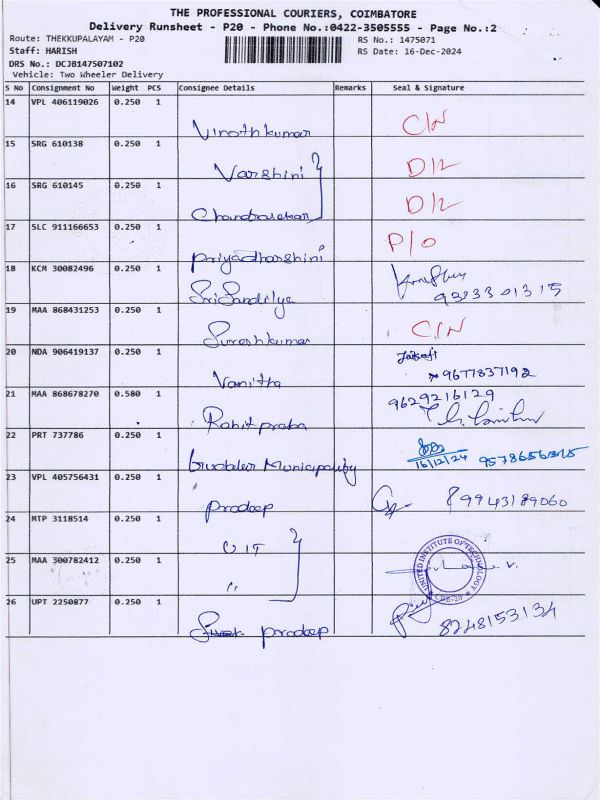 THE PROFESSIONAL COURIERS, COIMBATORE
Delivery Runsheet - P20 - Phone No.:0422-3505555 - Page No.:2
Route: THEKKUPALAYAM - P20 RS No.: 1475071
Staff: HARISH RS Date: 16-Dec-2024
DRS No.: DCJB147507102
Vehicle: Two Wheeler Delivery
S No Consignment No Weight PCS Consignee Details Remarks Seal & Signature
14 VPL 406119026 0.250 1 Vinothkumar C/N
15 SRG 610138 0.250 1 Varshini D/L
16 SRG 610145 0.250 1 Chandrasekar D/L
17 SLC 911166653 0.250 1 Priyadharshini P/O
18 KCM 30082496 0.250 1
19 MAA 868431253 0.250 1 Sureshkumar C/N
20 NDA 906419137 0.250 1 Vanitha 9677837192
21 MAA 868678270 0.580 1 Rohitpraba 9629216129
22 PRT 737786 0.250 1 Gudalur Municipality 16/12/24
23 VPL 405756431 0.250 1 Pradeep 89943189060
24 MTP 3118514 0.250 1 UIT
25 MAA 300782412 0.250 1 " UNITED INSTITUTE OF TECHNOLOGY CBE-20
26 UPT 2250877 0.250 1 Pradeep 8248153134